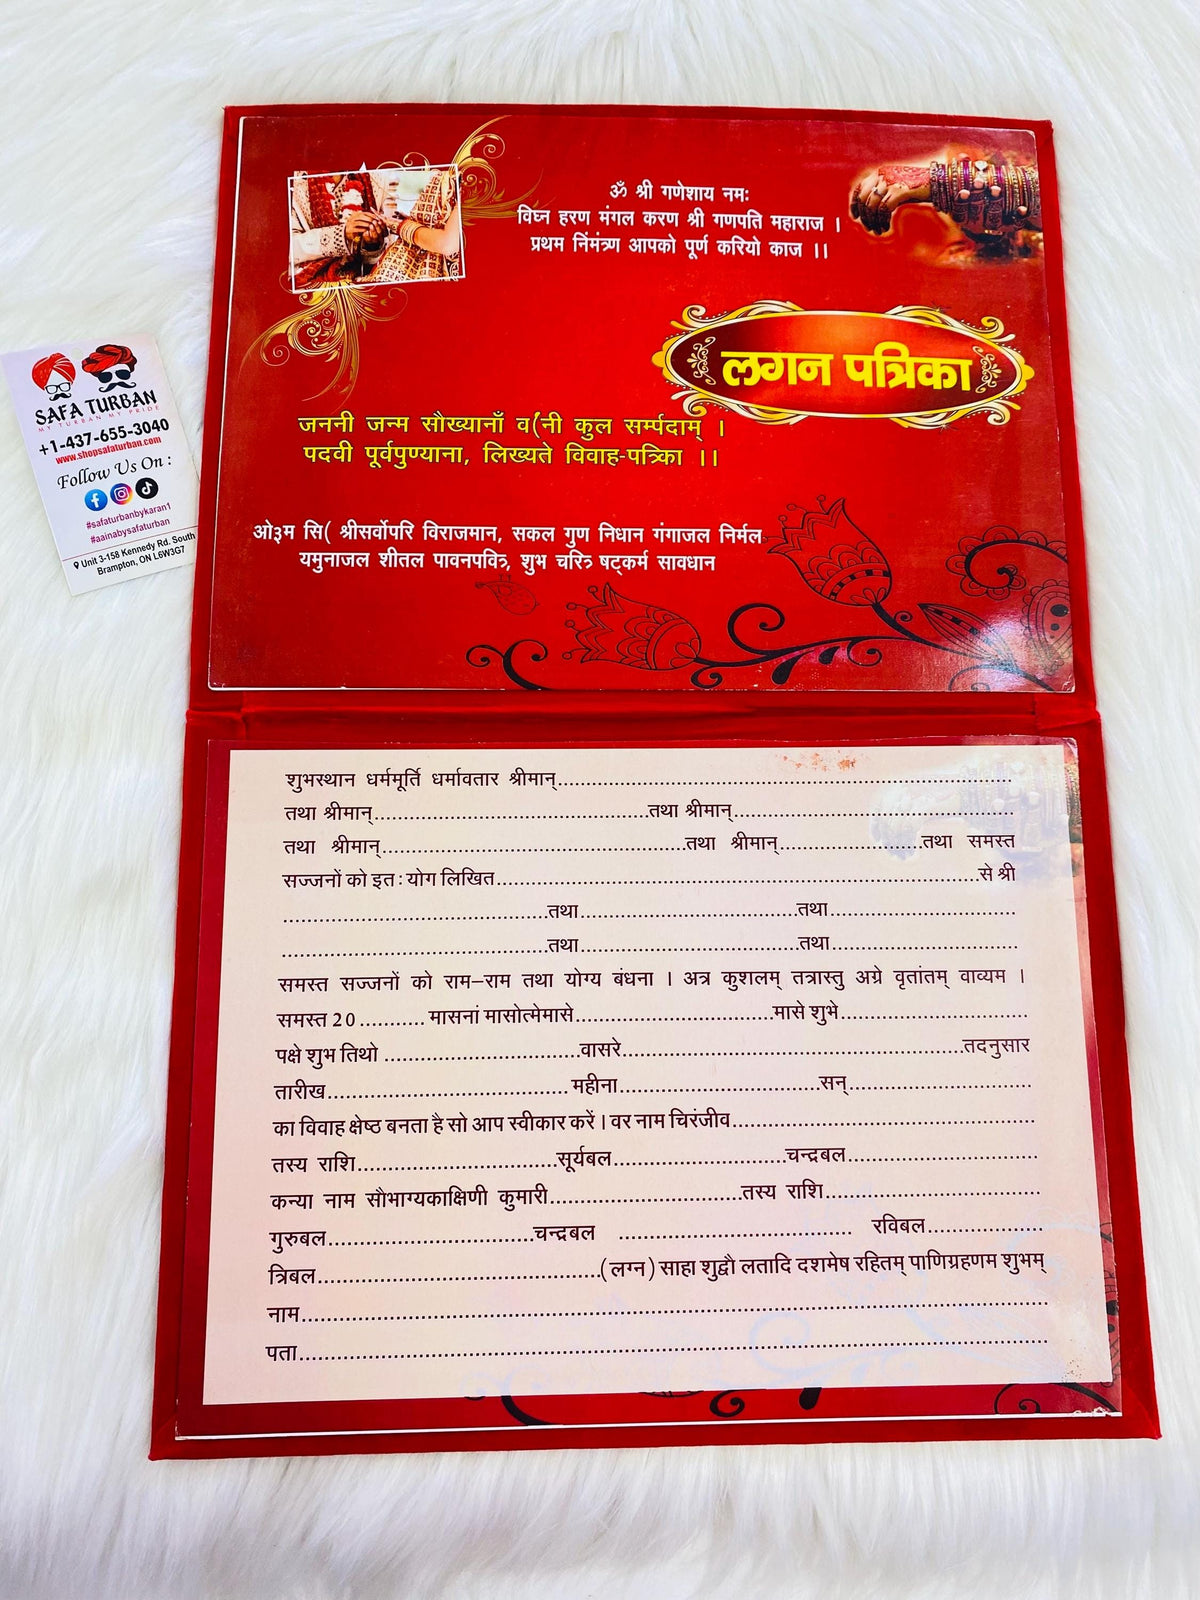 ॐ श्री गणेशाय नमः
विघ्न हरण मंगल करण श्री गणपति महाराज ।
प्रथम निंमंत्रण आपको पूर्ण करियो काज ।।
लगन पत्रिका
जननी जन्म सौख्यानाँ व(नी कुल सर्म्पदाम् ।
पदवी पूर्वपुण्याना, लिख्यते विवाह-पत्रिका ।।
ओ३म सि( श्रीसर्वोपरि विराजमान, सकल गुण निधान गंगाजल निर्मल
यमुनाजल शीतल पावनपवित्र, शुभ चरित्र षट्कर्म सावधान
SAFA TURBAN
MY TURBAN MY PRIDE
+1-437-655-3040
www.shopsafaturban.com
Follow Us On :
#safaturbanbykaran1
#aainabysafaturban
Unit 3-158 Kennedy Rd. South
Brampton, ON L6W3G7
शुभस्थान धर्ममूर्ति धर्मावतार श्रीमान्..............................
तथा श्रीमान्..............................तथा श्रीमान्..............................
तथा श्रीमान्..............................तथा श्रीमान्....................तथा समस्त
सज्जनों को इतः योग लिखित..............................से श्री
..............................तथा..............................तथा..............................
..............................तथा..............................तथा..............................
समस्त सज्जनों को राम–राम तथा योग्य बंधना । अत्र कुशलम् तत्रास्तु अग्रे वृतांतम् वाव्यम ।
समस्त 20........... मासनां मासोत्मेमासे..............................मासे शुभे..............................
पक्षे शुभ तिथो ..............................वासरे..............................तदनुसार
तारीख.............................. महीना..............................सन्..............................
का विवाह क्षेष्ठ बनता है सो आप स्वीकार करें । वर नाम चिरंजीव..............................
तस्य राशि..............................सूर्यबल..............................चन्द्रबल..............................
कन्या नाम सौभाग्यकाक्षिणी कुमारी..............................तस्य राशि..............................
गुरुबल..............................चन्द्रबल .............................. रविबल....................
त्रिबल..............................(लग्न) साहा शुद्वौ लतादि दशमेष रहितम् पाणिग्रहणम शुभम्
नाम..............................
पता..............................